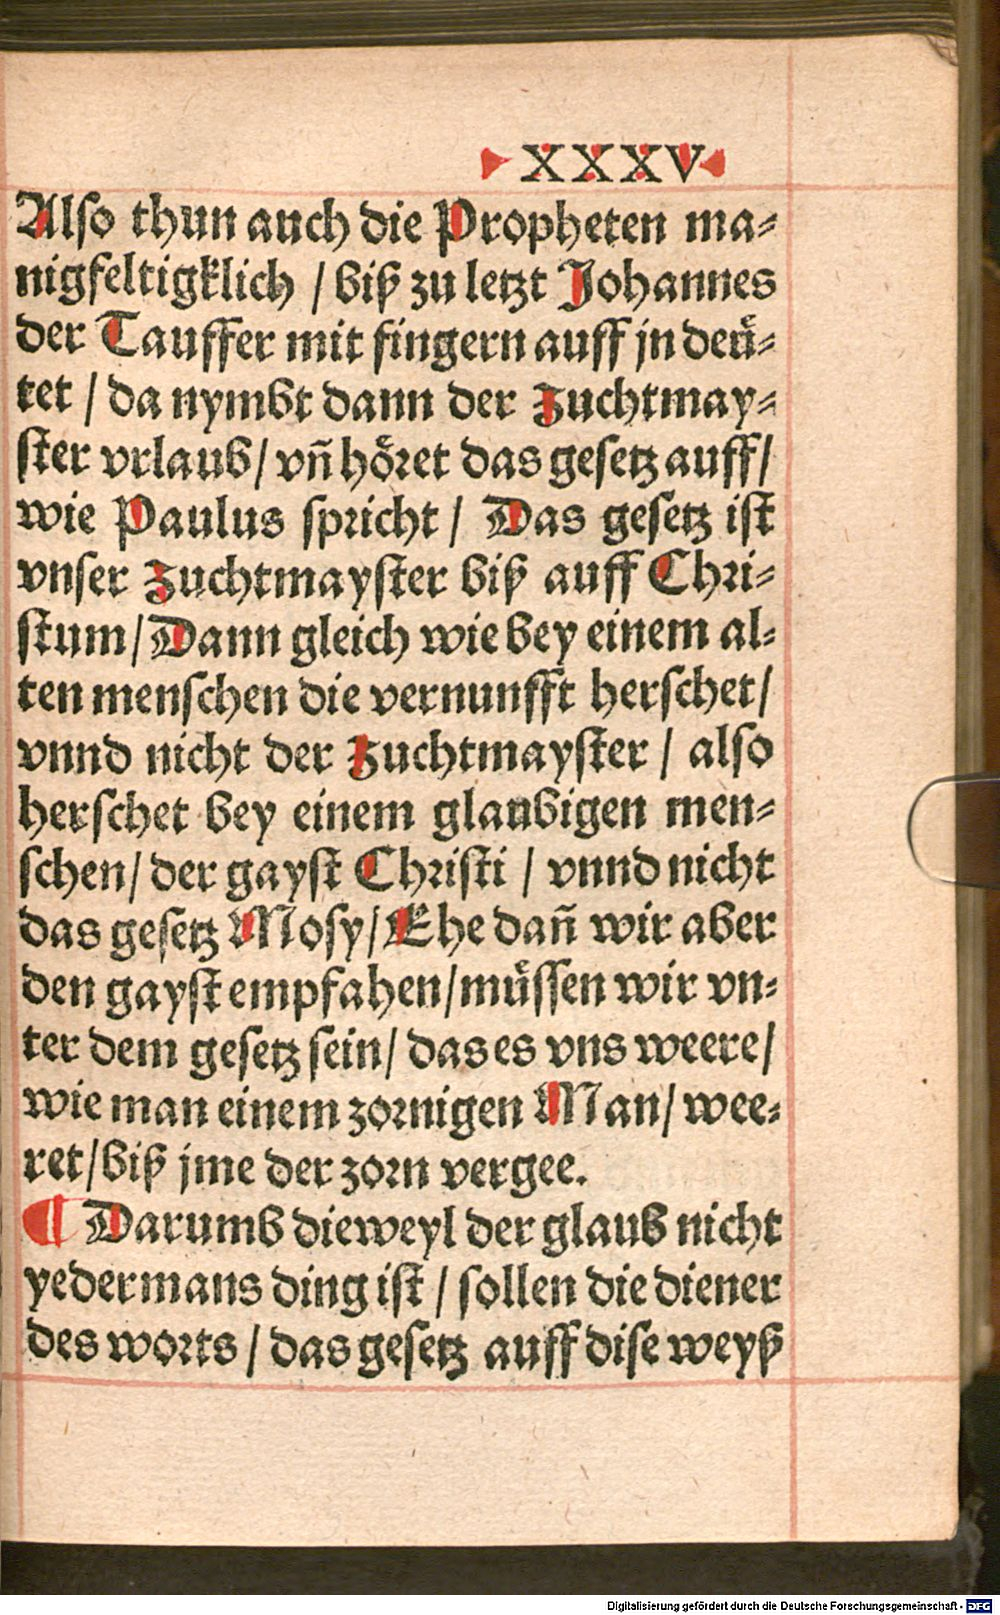 XXXV
Also thun auch die Propheten ma⸗
nigfeltigklich / biß zu letzt Johannes
der Tauffer mit fingern auff jn deuͤ⸗
tet / da nymbt dann der Zuchtmay⸗
ster vrlaub / vñ hoͤret das gesetz auff /
wie Paulus spricht / Das gesetz ist
vnser Zuchtmayster biß auff Chri⸗
stum / Dann gleich wie bey einem al⸗
ten menschen die vernunfft herschet /
vnnd nicht der Zuchtmayster / also
herschet bey einem glaubigen men⸗
schen / der gayst Christi / vnnd nicht
das gesetz Mosy / Ehe dañ wir aber
den gayst empfahen / muͤssen wir vn⸗
ter dem gesetz sein / das es vns weere /
wie man einem zornigen Man / wee⸗
ret / biß jme der zorn vergee.
¶ Darumb dieweyl der glaub nicht
yedermans ding ist / sollen die diener
des worts / das gesetz auff dise weyß
Digitalisierung gefördert durch die Deutsche Forschungsgemeinschaft - DFG